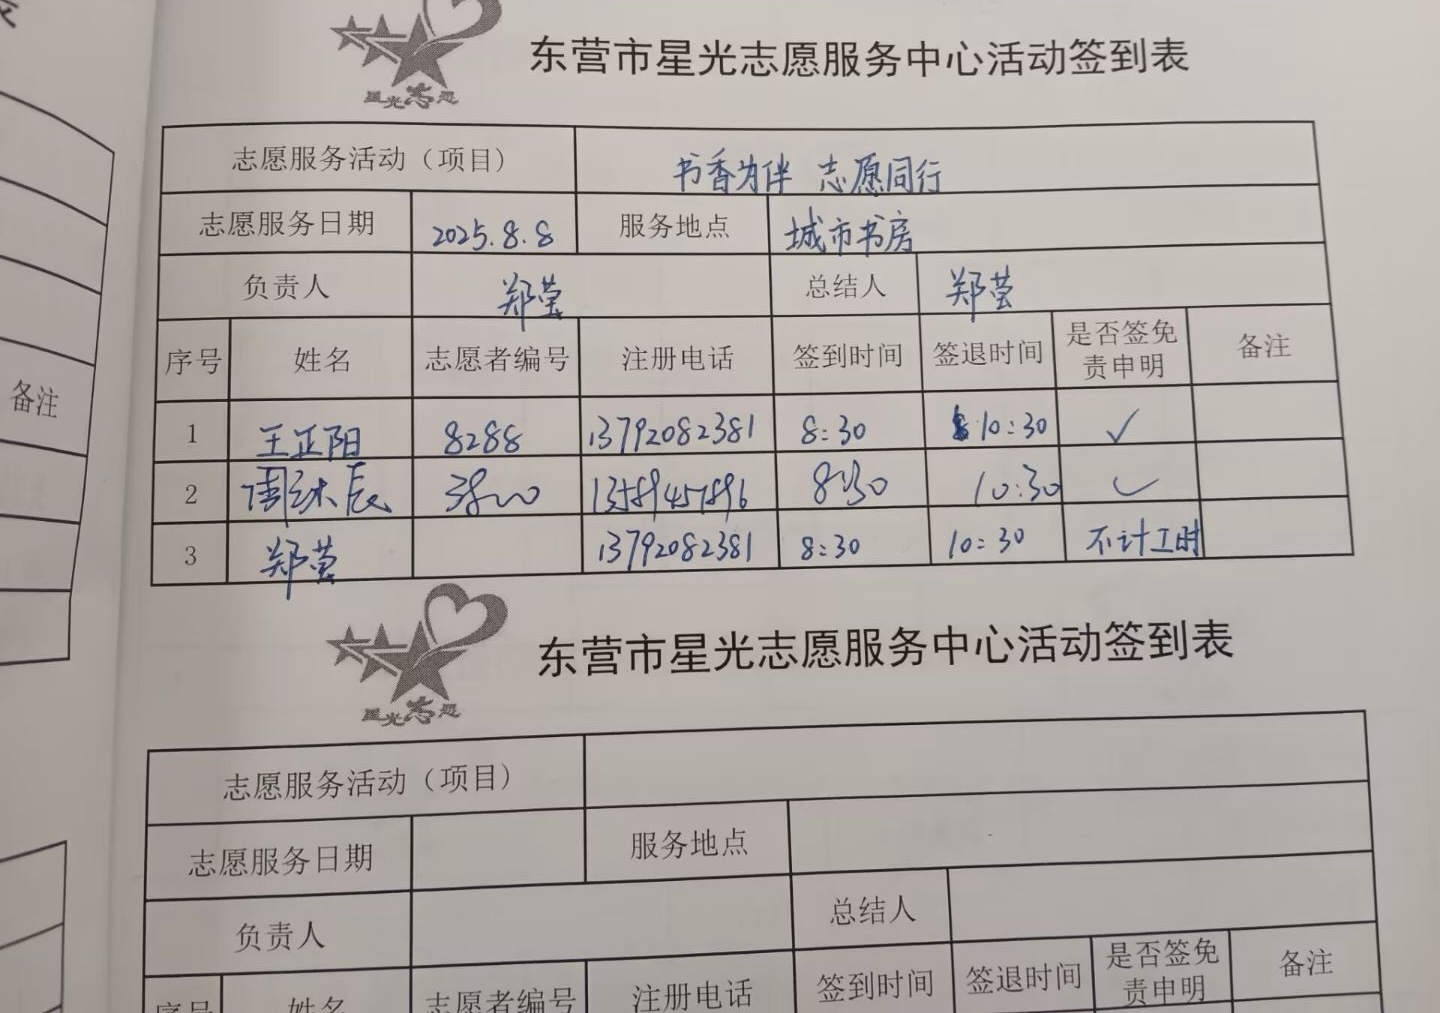 星光志愿
东营市星光志愿服务中心活动签到表
志愿服务活动（项目） 书香为伴 志愿同行
志愿服务日期 2025.8.8 服务地点 城市书房
负责人 郑莹 总结人 郑莹
序号 姓名 志愿者编号 注册电话 签到时间 签退时间 是否签免责申明 备注
1 王正阳 8288 13792082381 8:30 10:30 ✓
2 周 辰 8:30 10:30 ✓
3 郑莹 13792082381 8:30 10:30 不计工时
备注
星光志愿
东营市星光志愿服务中心活动签到表
志愿服务活动（项目）
志愿服务日期 服务地点
负责人 总结人
序号 姓名 志愿者编号 注册电话 签到时间 签退时间 是否签免责申明 备注